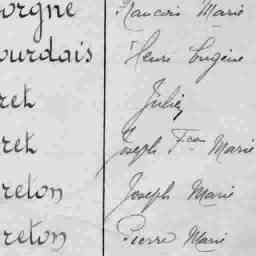 orgne François Marie
ourdais Henri Eugène
ret Julien
ret Joseph Fcois Marie
reton Joseph Marie
reton Pierre Marie